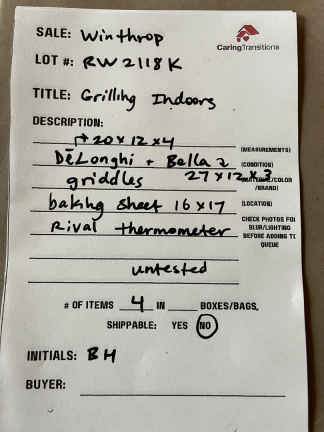 SALE: Winthrop
CaringTransitions
LOT #: RW2118K
TITLE: Grilling Indoors
DESCRIPTION:
→ 20 x 12 x 4
(MEASUREMENTS)
DeLonghi + Bella 2
(CONDITION)
griddles 27 x 12 x 3
/COLOR
/BRAND)
baking sheet 16 x 17
(LOCATION)
Rival thermometer
CHECK PHOTOS FOR
BLUR/LIGHTING
BEFORE ADDING TO
QUEUE
untested
# OF ITEMS 4 IN BOXES/BAGS.
SHIPPABLE: YES NO
INITIALS: BH
BUYER: